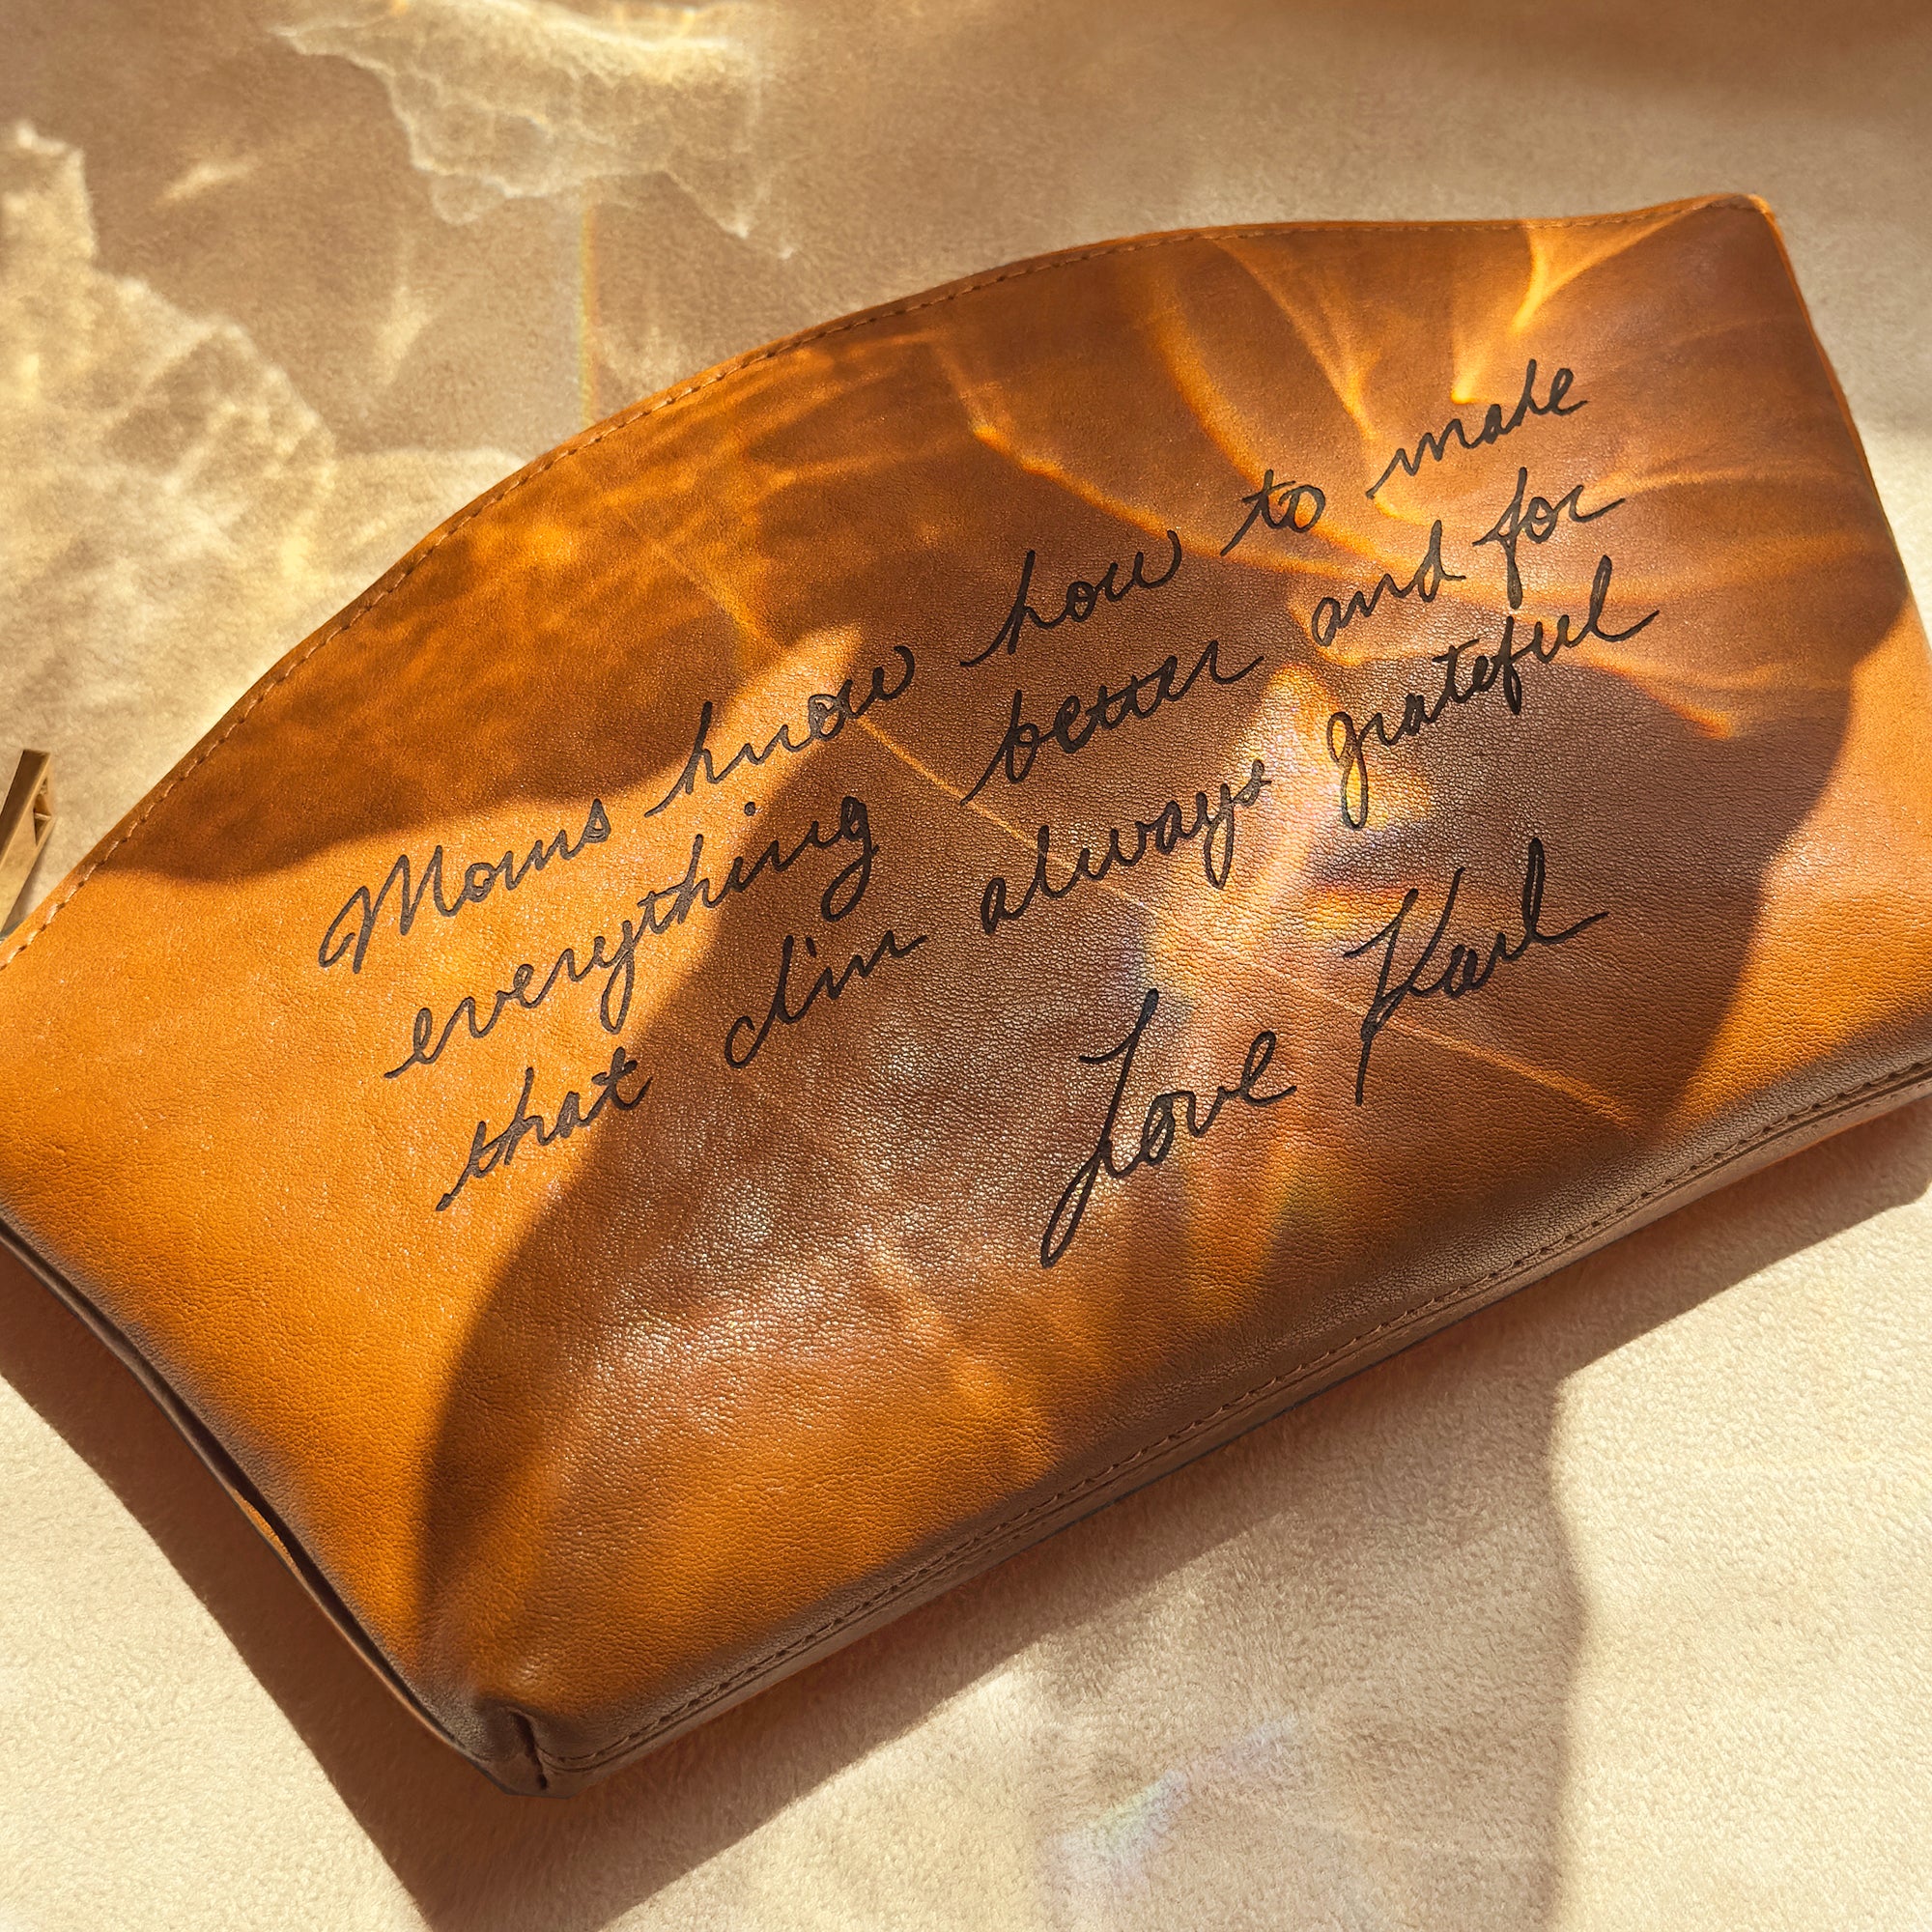 Moms know how to make
everything better and for
that I'm always grateful
Love Karl